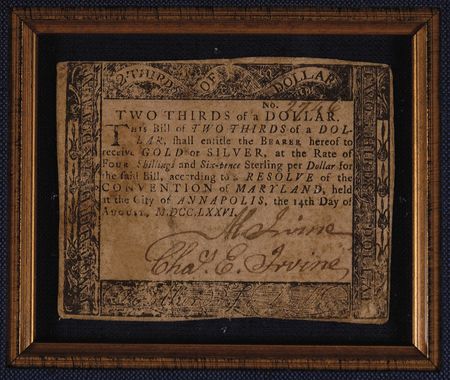 2 THIRDS OF A DOLLAR
No.
TWO THIRDS of a DOLLAR.
THIS Bill of TWO THIRDS of a DOL-
LAR, shall entitle the BEARER hereof to
receive GOLD or SILVER, at the Rate of
FOUR Shillings and Six-pence Sterling per Dollar for
the said Bill, according to a RESOLVE of the
CONVENTION of MARYLAND, held
at the City of ANNAPOLIS, the 14th Day of
AUGUST, M.DCC.LXXVI.
M Irvine
Chas. E. Irvine